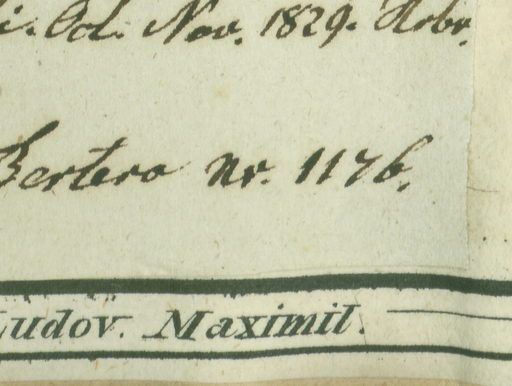 i. Oct. Nov. 1829. Arbr.
Bertero nr. 1176.
Ludov. Maximil.